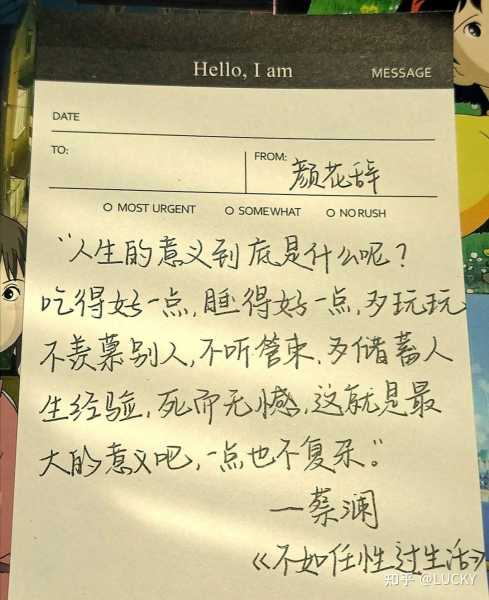 Hello, I am
MESSAGE
DATE
TO:
FROM: 颜花辞
O MOST URGENT O SOMEWHAT O NO RUSH
“人生的意义到底是什么呢?
吃得好一点,睡得好一点,多玩玩
不羡慕别人,不听管束,多储蓄人
生经验,死而无憾,这就是最
大的意义吧,一点也不复杂。”
—蔡澜
《不如任性过生活》
知乎 @LUCKY